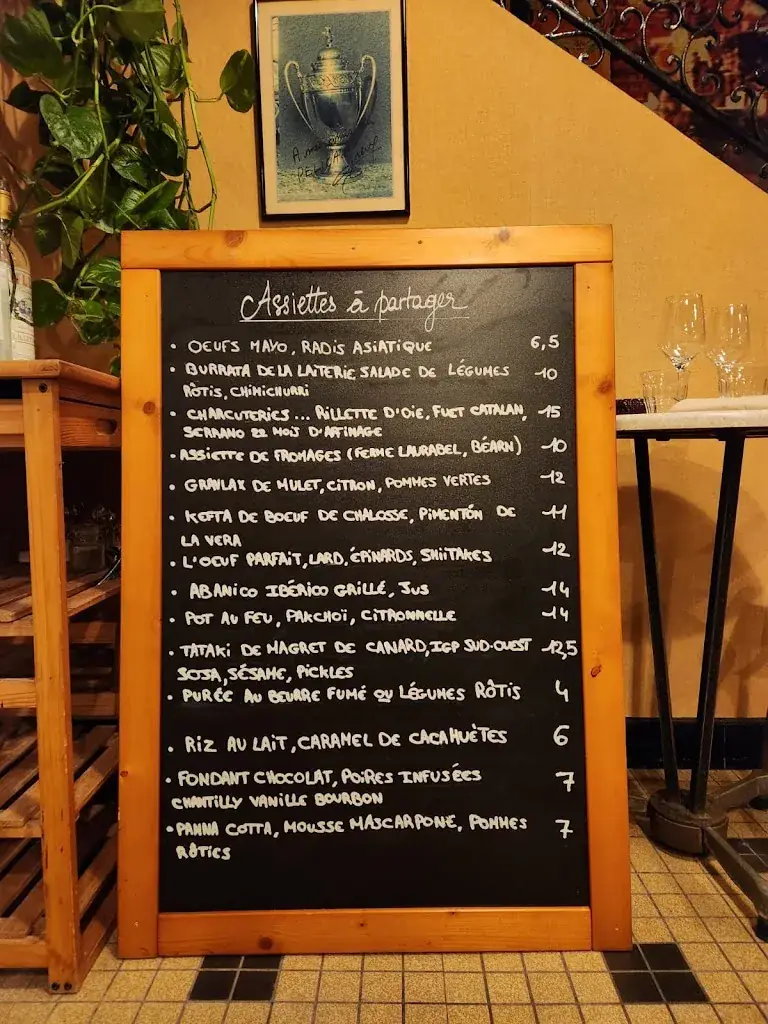 Assiettes à partager
• OEUFS MAYO, RADIS ASIATIQUE 6,5
• BURRATA DE LA LAITERIE SALADE DE LÉGUMES -10
RÔTIS, CHIMICHURRI
• CHARCUTERIES... RILLETTE D'OIE, FUET CATALAN, -15
SERRANO 22 MOIS D'AFFINAGE
• ASSIETTE DE FROMAGES (FERME LAURABEL, BÉARN) -10
• GRAVLAX DE MULET, CITRON, POMMES VERTES -12
• KEFTA DE BOEUF DE CHALOSSE, PIMENTÓN DE -11
LA VERA
• L'OEUF PARFAIT, LARD, ÉPINARDS, SHIITAKES -12
• ABANICO IBÉRICO GRILLÉ, JUS -14
• POT AU FEU, PAKCHOÏ, CITRONNELLE -14
• TATAKI DE MAGRET DE CANARD, IGP SUD-OUEST -12,5
SOJA, SÉSAME, PICKLES
• PURÉE AU BEURRE FUMÉ OU LÉGUMES RÔTIS 4
• RIZ AU LAIT, CARAMEL DE CACAHUÈTES 6
• FONDANT CHOCOLAT, POIRES INFUSÉES 7
CHANTILLY VANILLE BOURBON
• PANNA COTTA, MOUSSE MASCARPONE, POMMES 7
RÔTIES